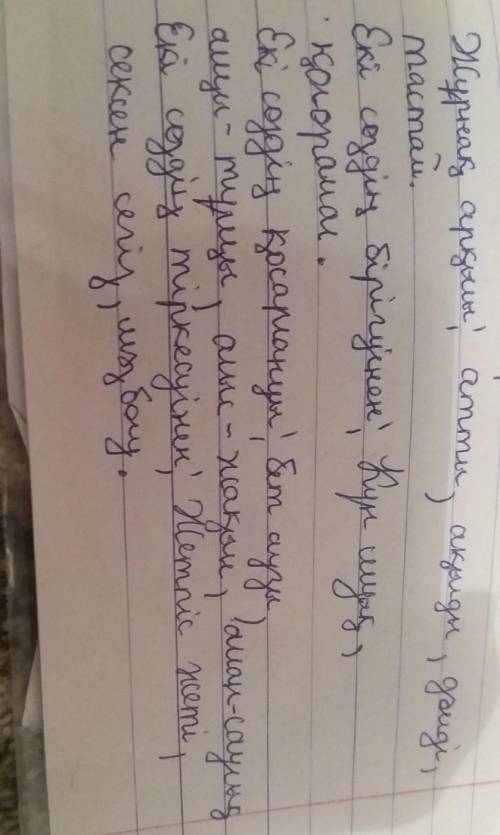 Жұрнақ арқылы; атты, ақылды, дәмді,
тастай.
Екі сөздің бірігуінен; Күн шуақ,
қолорамал.
Екі сөздің қосарлануы; бет аузы,
ащы-тұщы, алыс-жақын, аман-саулық
Екі сөздің тіркесуінен; Жетпіс жеті,
сексен сегіз, мәз болу.